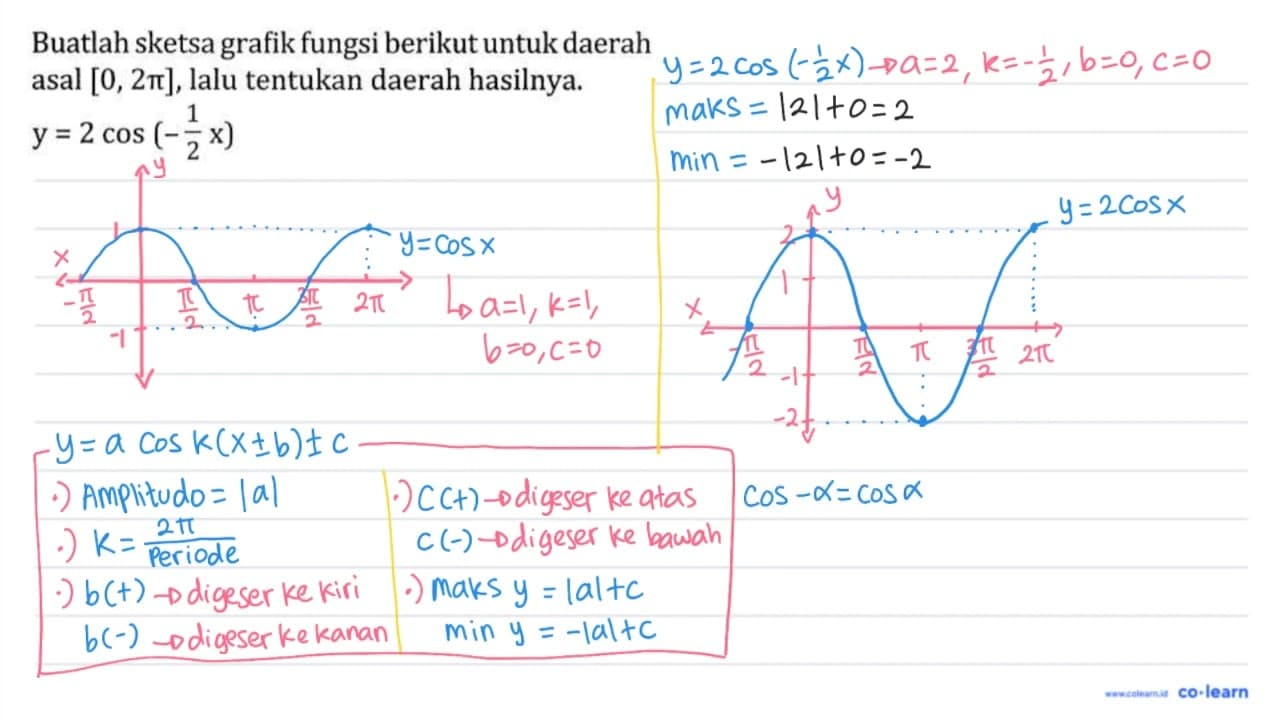 Buatlah sketsa grafik fungsi berikut untuk daerah
asal [0, 2π], lalu tentukan daerah hasilnya.
y = 2 cos (-1/2 x)
y = 2 cos (-1/2 x) → a = 2, k = -1/2, b = 0, c = 0
maks = |2| + 0 = 2
min = -|2| + 0 = -2
y
1
x
y = cos x
-π/2
π/2
π
3π/2
2π
-1
↳ a=1, k=1,
b=0, c=0
y
2
y = 2 cos x
1
x
-π/2
π/2
π
3π/2
2π
-1
-2
y = a cos k(x ± b) ± c
·) Amplitudo = |a|
·) k = 2π/Periode
·) b(+) → digeser ke kiri
b(-) → digeser ke kanan
·) c(+) → digeser ke atas
c(-) → digeser ke bawah
·) maks y = |a| + c
min y = -|a| + c
cos -α = cos α
www.colearn.id co·learn